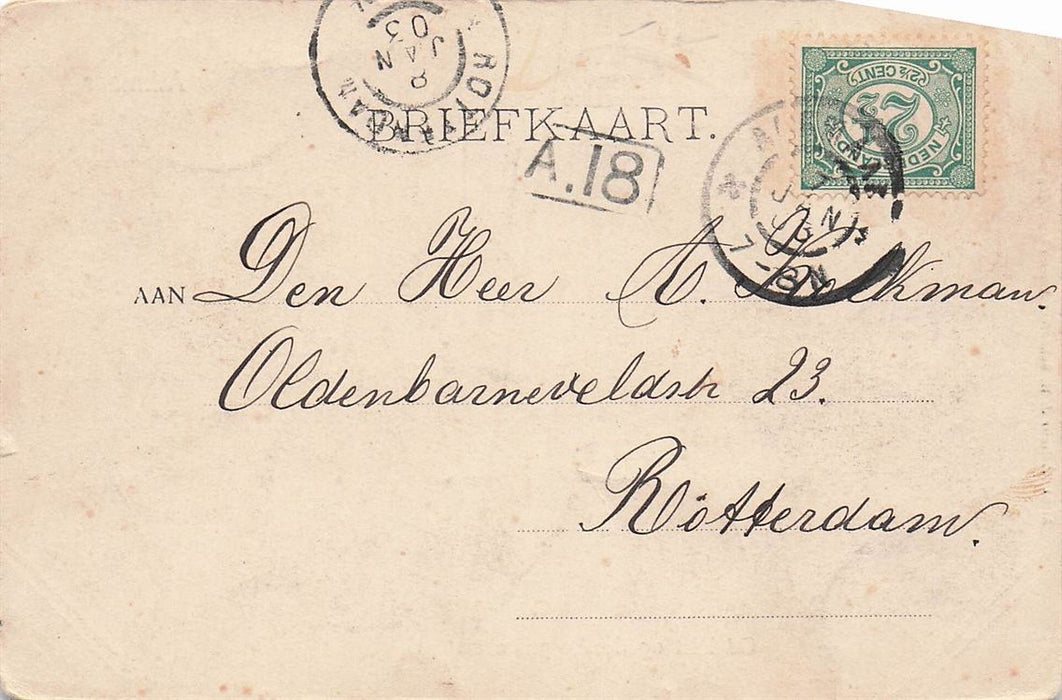 ROTTERDAM
8
JAN
03
BRIEFKAART.
A.18
2½ CENT
NEDERLAND
JAN
7-8N
AAN Den Heer A.
Oldenbarneveldstr 23.
Rotterdam.